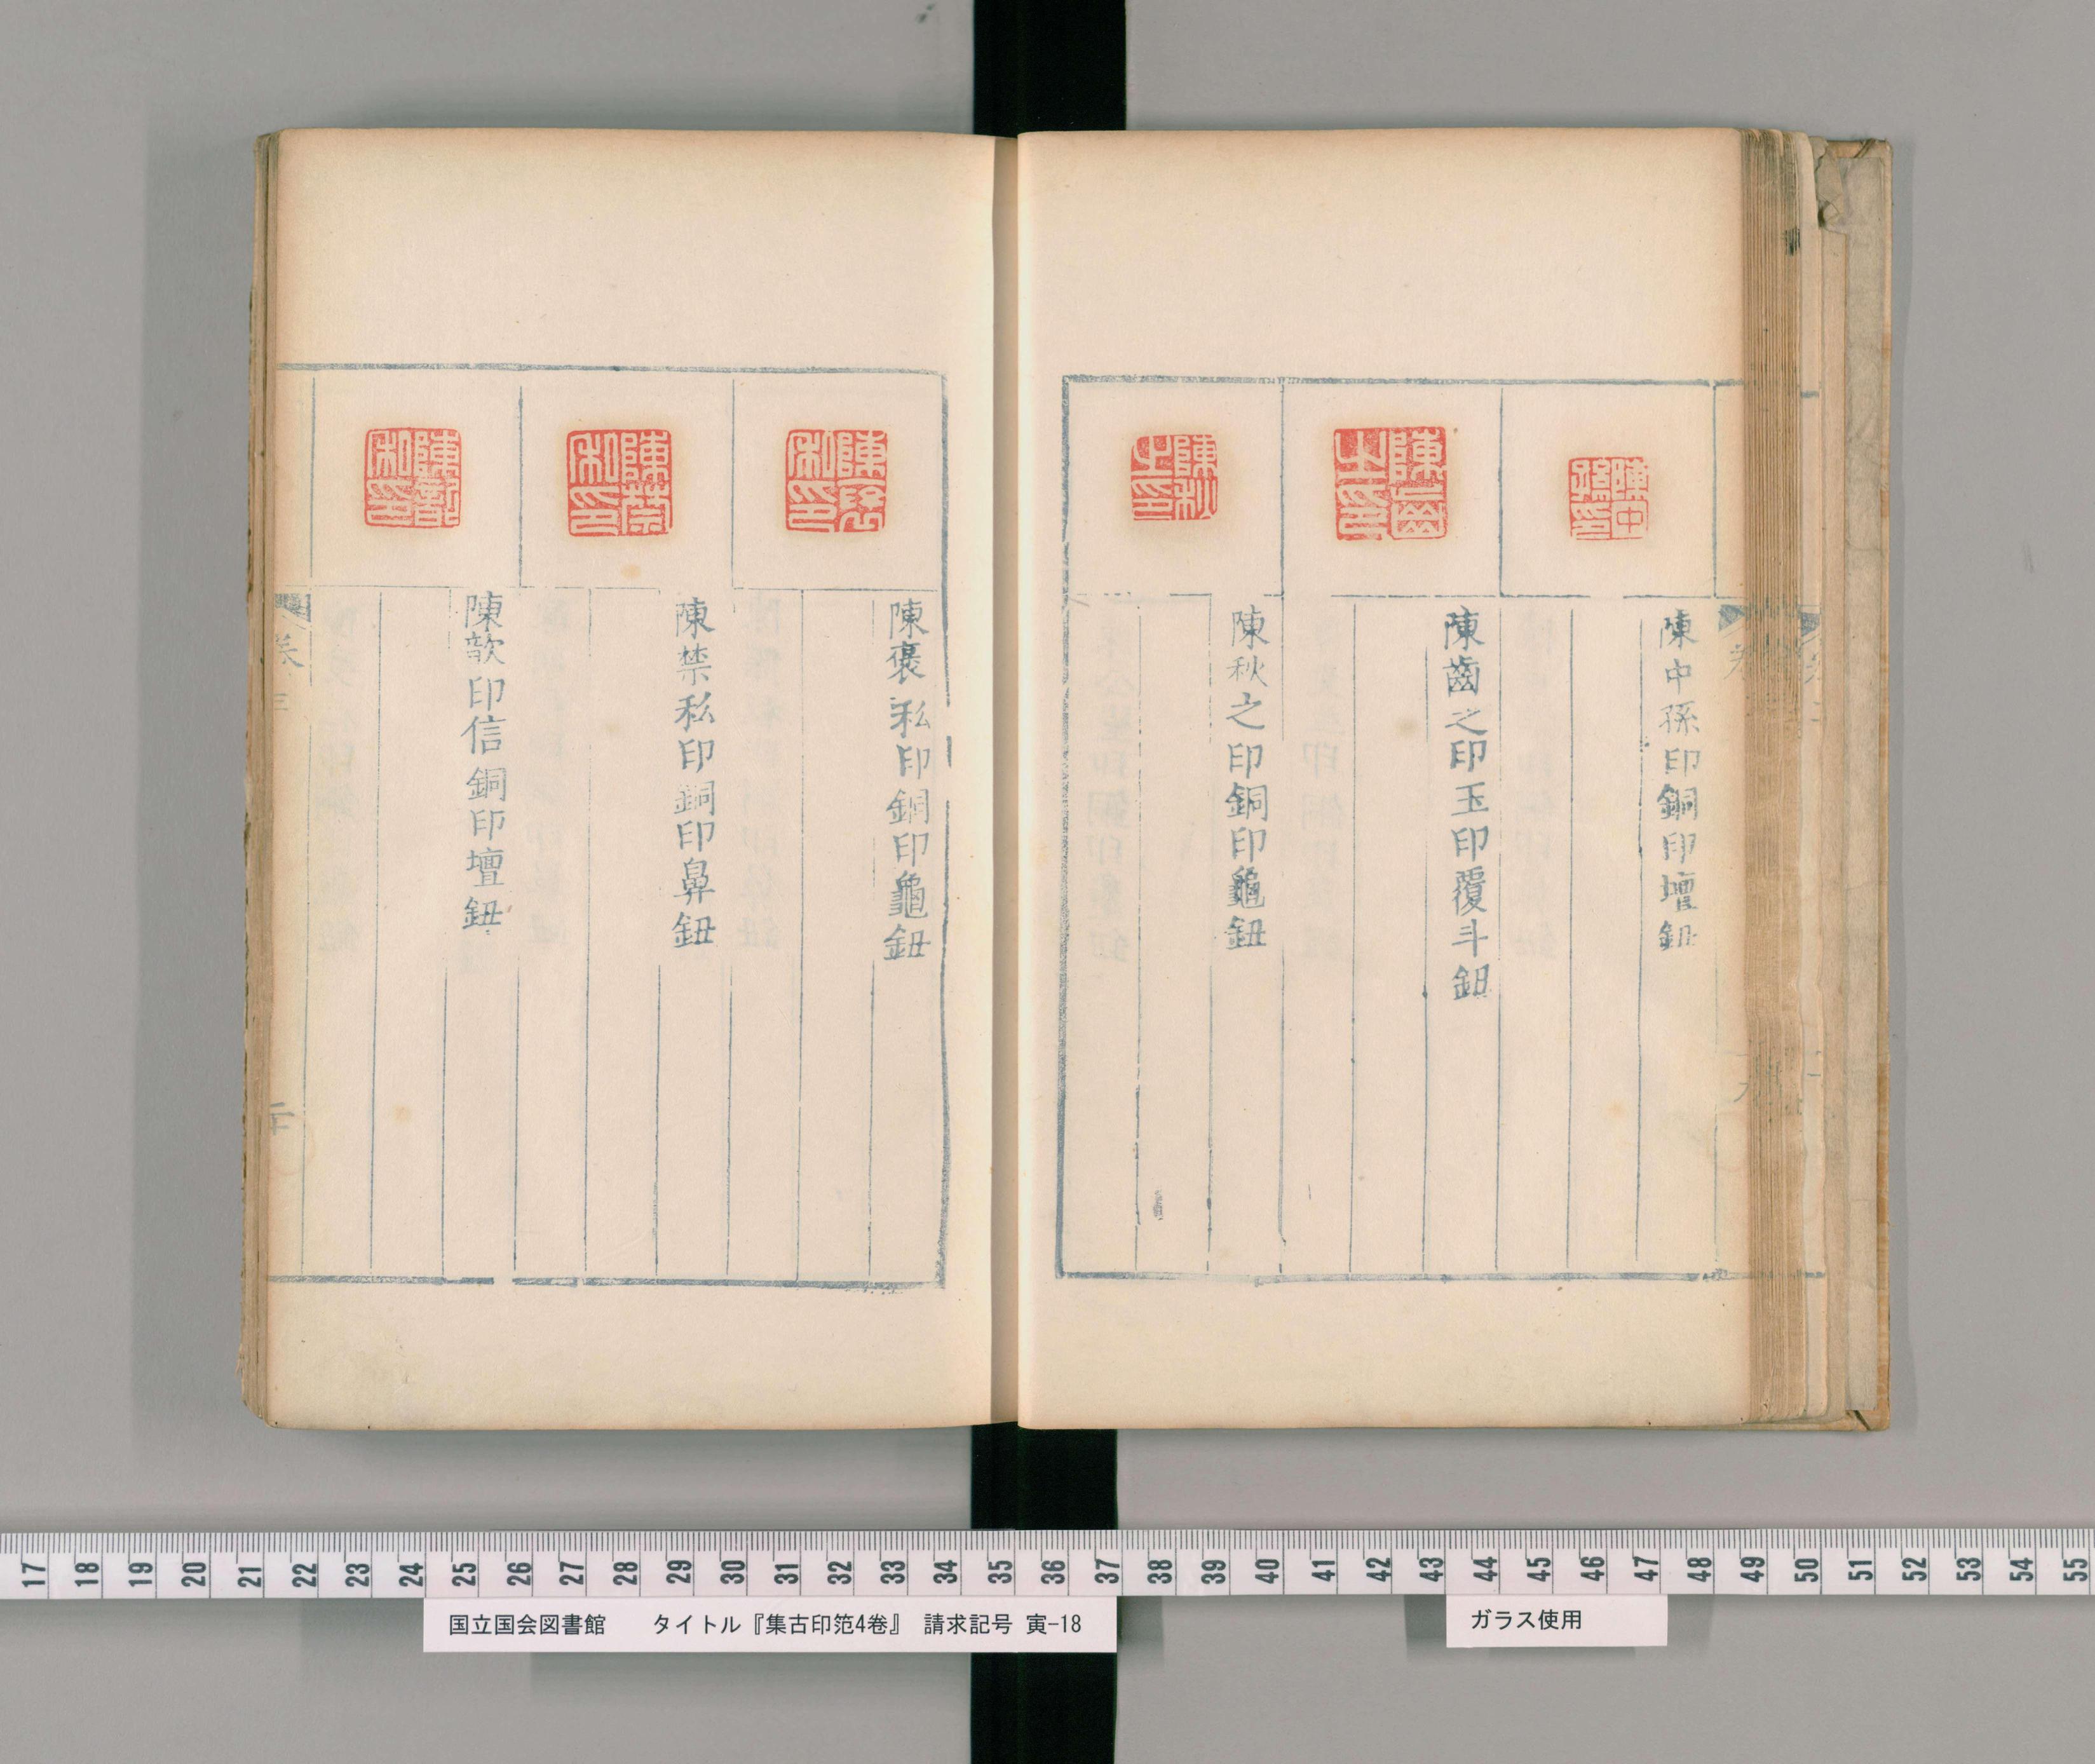 陳中孫印
陳中孫印銅印壇鈕
陳齒之印
陳齒之印玉印覆斗鈕
陳秋之印
陳秋之印銅印龜鈕
陳褒私印
陳褒私印銅印龜鈕
陳禁私印
陳禁私印銅印鼻鈕
陳歆印信銅印壇鈕
17 18 19 20 21 22 23 24 25 26 27 28 29 30 31 32 33 34 35 36 37 38 39 40 41 42 43 44 45 46 47 48 49 50 51 52 53 54 55
国立国会図書館 タイトル『集古印笵4巻』 請求記号 寅-18
ガラス使用